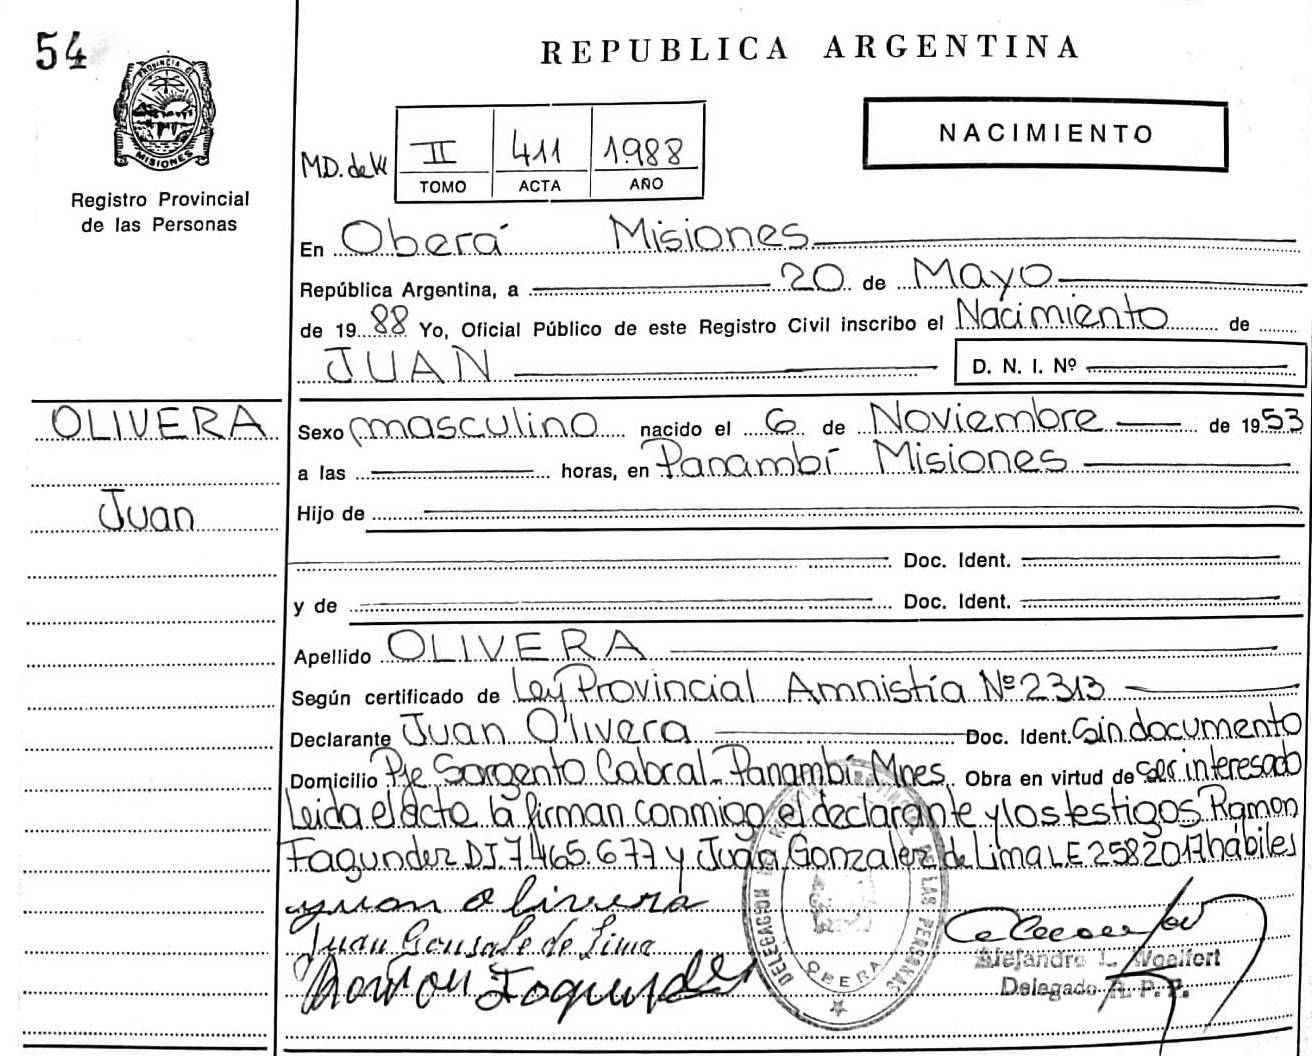 54
REPUBLICA ARGENTINA
PROVINCIA DE
MISIONES
Registro Provincial
de las Personas
NACIMIENTO
II 411 1988
TOMO ACTA AÑO
En Oberá Misiones
República Argentina, a 20 de Mayo
de 1988 Yo, Oficial Público de este Registro Civil inscribo el Nacimiento de
JUAN
D. N. I. Nº
OLIVERA
Juan
Sexo masculino nacido el 6 de Noviembre de 1953
a las horas, en Panambí Misiones
Hijo de
Doc. Ident.
y de Doc. Ident.
Apellido OLIVERA
Según certificado de Ley Provincial Amnistía Nº 2313
Declarante Juan Olivera Doc. Ident. Sin documento
Domicilio Pje Sargento Cabral_ Panambí Mnes. Obra en virtud de ser interesado
Leida el acta la firman conmigo el declarante y los testigos Ramon
Fagunder DI 7.465.677 y Juan Gonzalez de Lima LE 2582017 hábiles
Juan Olivera
Juan Gonsale de Lima
Ramon Fagunde
DELEGACION REGISTRO PROVINCIAL DE LAS PERSONAS
OBERA
Alejandro L. Woelfert
Delegado R. P. P.